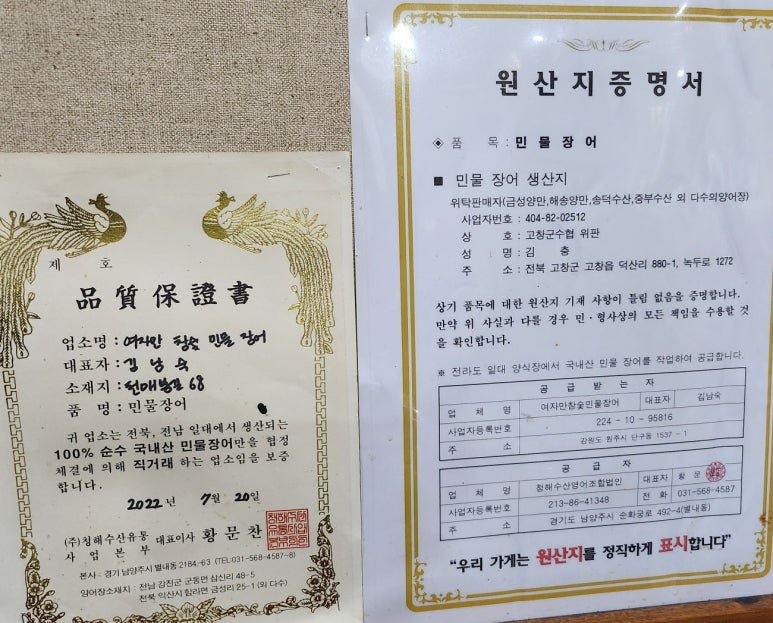 제 호
品質保證書
업소명 : 여자만 참숯 민물 장어
대표자 : 김 남 숙
소재지 : 천매봉길 68
품 명 : 민물장어
귀 업소는 전북, 전남 일대에서 생산되는
100% 순수 국내산 민물장어만을 협정
체결에 의해 직거래 하는 업소임을 보증
합니다.
2022 년 7 월 20 일
(주)청해수산유통 대표이사 황 문 찬
사 업 본 부
본사 : 경기 남양주시 별내동 2184-63 (TEL:031-568-4587~8)
양어장소재지 : 전남 강진군 군동면 삼신리 48-5
전북 익산시 함라면 금성리 25-1 (외 다수)
원산지증명서
◈ 품 목 : 민 물 장 어
■ 민물 장어 생산지
위탁판매자(금성양만,해송양만,송덕수산,중부수산 외 다수의양어장)
사업자번호 : 404-82-02512
상 호 : 고창군수협 위판
성 명 : 김 충
주 소 : 전북 고창군 고창읍 덕산리 880-1, 녹두로 1272
상기 품목에 대한 원산지 기재 사항이 틀림 없음을 증명합니다.
만약 위 사실과 다를 경우 민·형사상의 모든 책임을 수용할 것
을 확인합니다.
※ 전라도 일대 양식장에서 국내산 민물 장어를 작업하여 공급합니다.
공 급 받 는 자
업 체 명 여자만참숯민물장어 대표자 김남숙
사업자등록번호 224 - 10 - 95816
주 소 강원도 원주시 단구동 1537 - 1
공 급 자
업 체 명 청해수산영어조합법인 대표자 황 문
사업자등록번호 213-86-41348 전 화 031-568-4587
주 소 경기도 남양주시 순화궁로 492-4(별내동)
“우리 가게는 원산지를 정직하게 표시합니다”